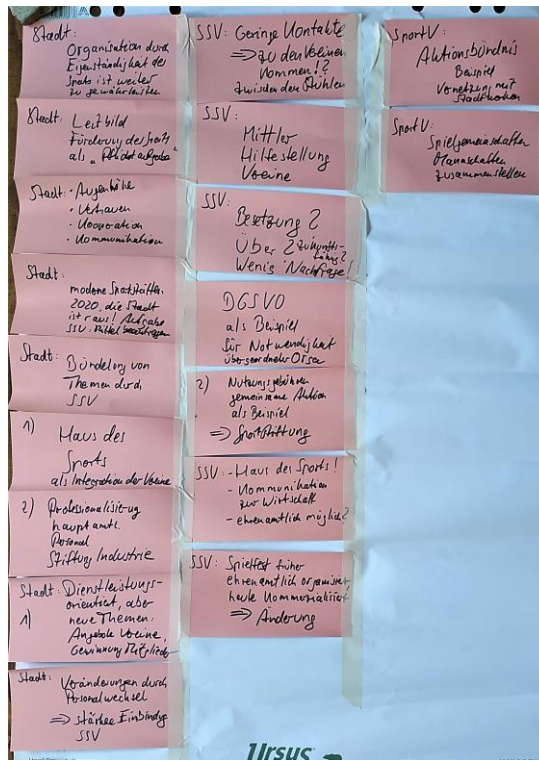 Stadt:
Organisation durch
Eigenständigkeit des
Sports ist weiter
zu gewährleisten
Stadt: Leitbild
Förderung des Sports
als „Pflichtaufgabe"
Stadt: - Augenhöhe
- Vertrauen
- Kooperation
- Kommunikation
Stadt:
moderne Sportstätten
2020, die Stadt
ist raus! Aufgabe
SSV: Mittel
Stadt: Bündelung von
Themen durch
SSV
1) Haus des
Sports
als Integration der Vereine
2) Professionalisierung
hauptamtl.
Personal
Stiftung Industrie
Stadt: Dienstleistungs-
1) orientiert, aber
neue Themen:
Angebote Vereine,
Gewinnung Mitglieder
Stadt:
Veränderungen durch
Personalwechsel
=> stärkere Einbindg
SSV
SSV: Geringe Kontakte
=> zu den Vereinen
kommen!?
zwischen den Stühlen
SSV:
Mittler
Hilfestellung
Vereine
SSV:
Besetzung?
Über ? Zukunfts-
fähig?
Wenig Nachfrage!
DGSVO
als Beispiel
für Notwendigkeit
übergeordneter Orga
2) Nutzungsgebühren
gemeinsame Aktion
als Beispiel
=> Sportstiftung
SSV: - Haus des Sports!
- Kommunikation
zur Wirtschaft
- ehrenamtlich möglich?
SSV: Spielfest früher
ehrenamtlich organisiert
heute kommerzialisiert
=> Änderung
SportV:
Aktionsbündnis
Beispiel
Vernetzung mit
SportV:
Spielgemeinschaften
Mannschaften
zusammenstellen
Ursus